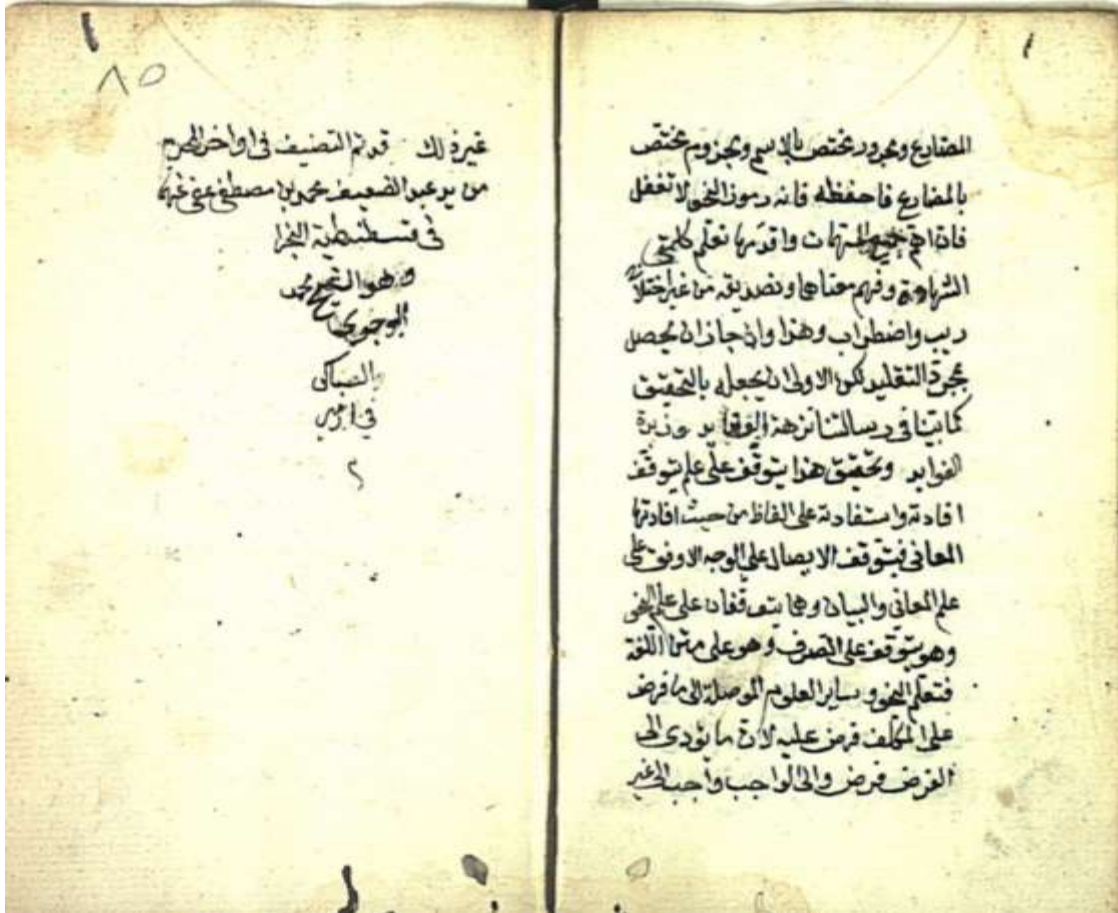 المضارع ومجرور مختص بالاسم ومجزوم مختص
بالمضارع فاحفظه فانه رموز النحو لا تغفل
فان اهم جميع المهمات واقدمها تعلم كلمتي
الشهادة وفهم معناها وتصديقه من غير اختلاج
ريب واضطراب وهذا وان جاز ان يحصل
بمجرد التقليد لكن الاولى ان يجعله بالتحقيق
كما بينا في رسالتنا نزهة وزبدة
الفوايد وتحقيق هذا يتوقف على علم يتوقف
افادته واستفادته على الفاظ من حيث افادتها
المعاني فيتوقف الايصال على الوجه الاوفق على
علم المعاني والبيان وهما يتوقفان على علم النحو
وهو يتوقف على الصرف وهو على متن اللغة
فتعلم النحو وساير العلوم الموصلة الى ما فرض
على المكلف فرض عليه لان ما يؤدى الى
الفرض فرض والى الواجب واجب الى غير
٨٥
غير ذلك قد تم التصنيف في اواخر المحرم
من يد عبد الضعيف محمد بن مصطفى عفى عنهما
في قسطنطية
وهو محمد
في